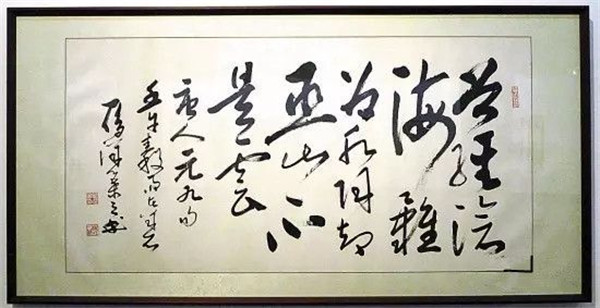 曾經滄
海難
為水除却
巫山不
是雲
唐人元九句
壬午